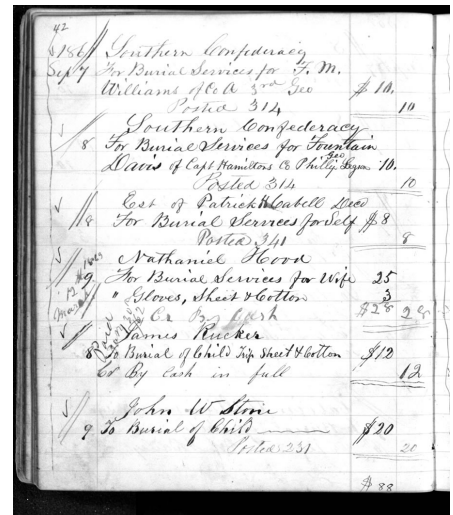 42
1861 Southern Confederacy
Sep 7 For Burial Services for F. M.
Williams of Co A 3rd Geo $10.
Posted 314 10
Southern Confederacy
8 For Burial Services for Fountain
Davis of Capt Hamiltons Co Philip Geo Legion 10.
Posted 314 10
Est of Patrick H Cabell Decd
8 For Burial Services for Self $8
Posted 341 8
Nathaniel Hood
9 For Burial Services for Wife 25
" Gloves, Sheet & Cotton 3
Cr By Cash $28 28
Paid
March 12th 1863
James Rucker
8 To Burial of Child Trip Sheet & Cotton $12
Cr By Cash in full 12
John W Stone
9 To Burial of Child $20
Posted 231 20
$88